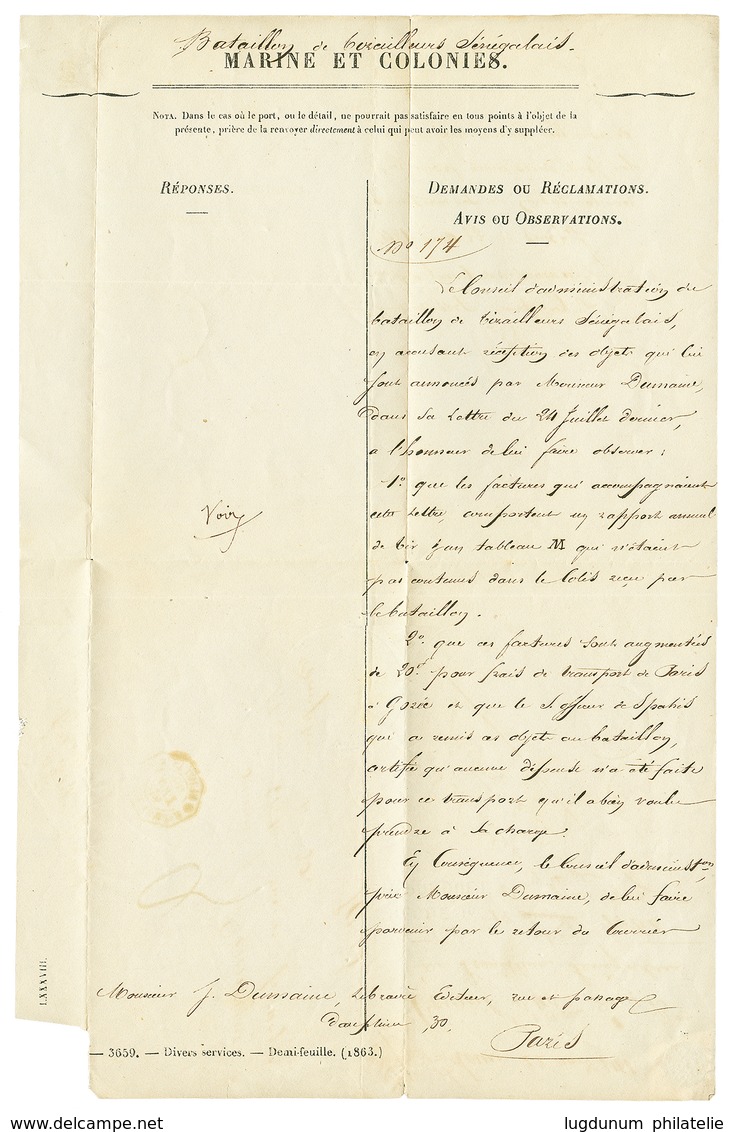 Bataillon de tirailleurs Sénégalais.
MARINE ET COLONIES.
NOTA. Dans le cas où le port, ou le détail, ne pourrait pas satisfaire en tous points à l'objet de la
présente, prière de la renvoyer directement à celui qui peut avoir les moyens d'y suppléer.
RÉPONSES.
DEMANDES OU RÉCLAMATIONS.
AVIS OU OBSERVATIONS.
No 174
Le Conseil d'administration du
bataillon de tirailleurs Sénégalais,
en accusant réception des objets qui lui
sont annoncés par Monsieur Dumaine,
dans sa lettre du 24 Juillet dernier,
a l'honneur de lui faire observer:
1o que les factures qui accompagnaient
cette lettre, comportent un rapport annuel
de tir & un tableau M qui n'étaient
pas contenus dans le colis reçu par
le bataillon.
2o que ces factures sont augmentées
de 20f pour frais de transport de Paris
à Gorée et que le S. officier de Spahis
qui a remis ces objets au bataillon,
certifie qu'aucune dépense n'a été faite
pour ce transport qu'il a bien voulu
prendre à sa charge.
En Conséquence, le Conseil d'administon,
prie Monsieur Dumaine, de lui faire
parvenir par le retour du Courrier
Voir
Monsieur J. Dumaine, Libraire Editeur, rue et passage
Dauphine, 30.
Paris
LXXXVIII.
— 3659. — Divers services. — Demi-feuille. (1863.)
lugdunum philatelie